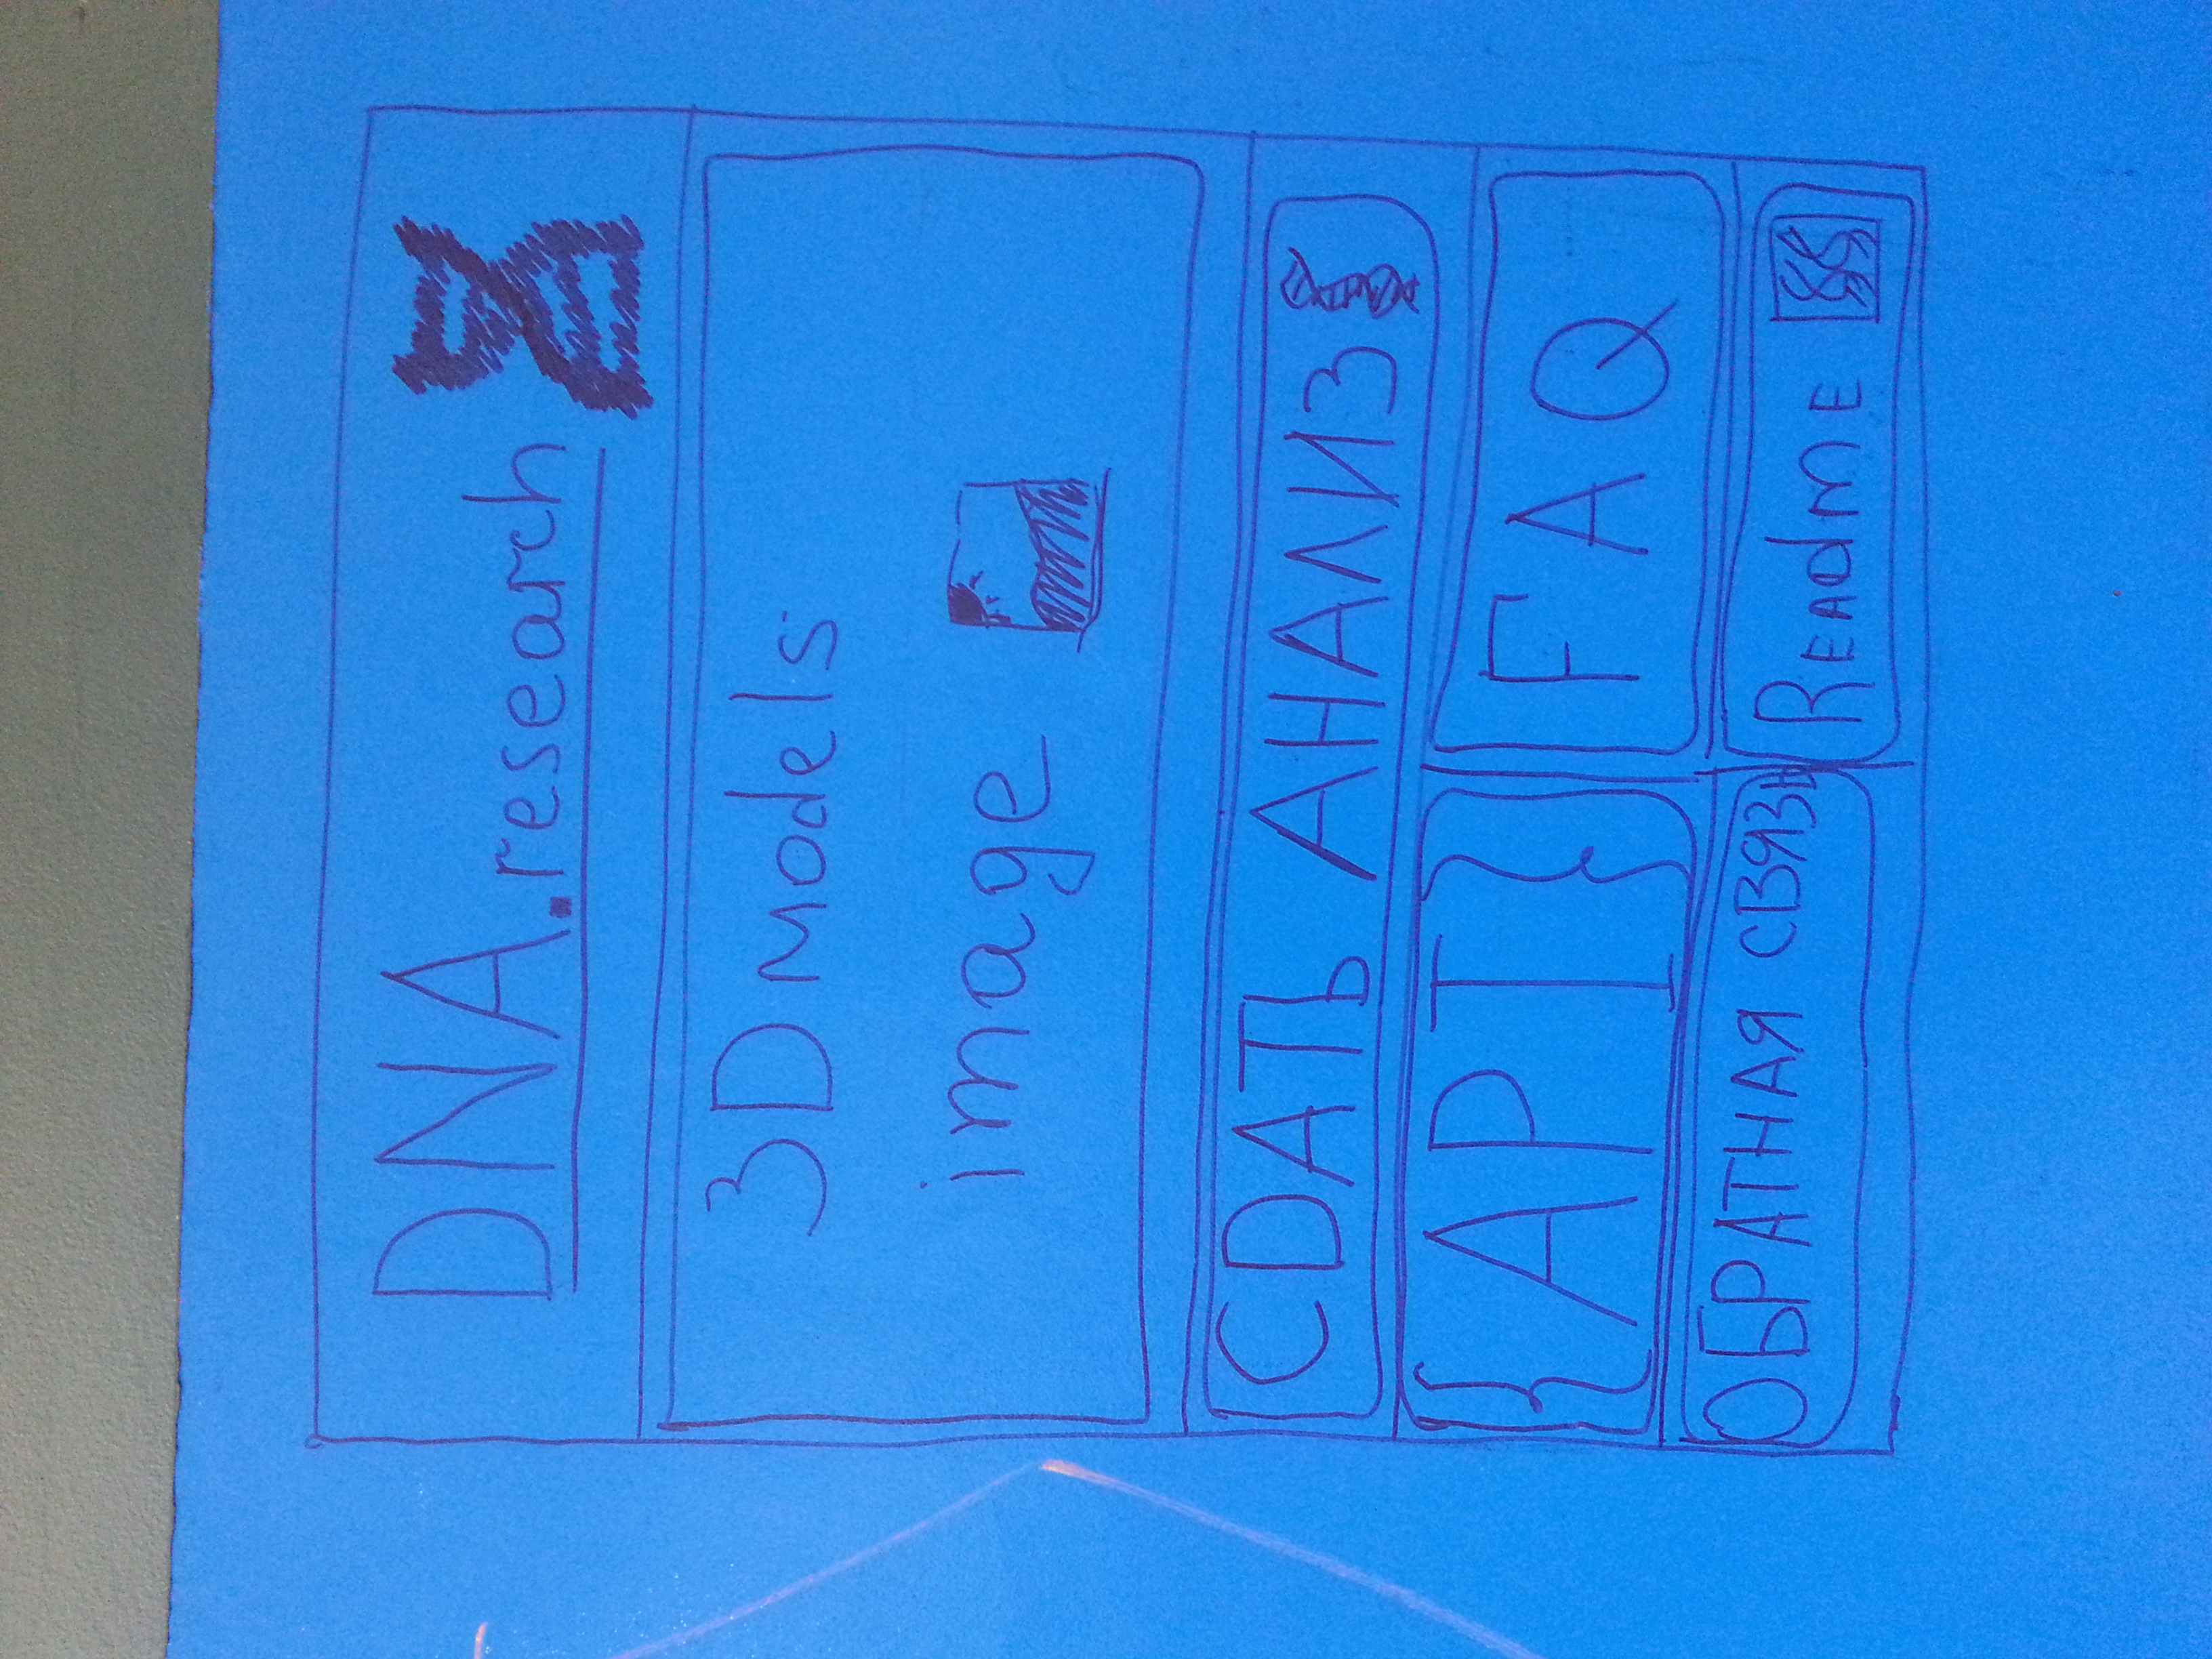 DNA.research
3D models
image
СДАТЬ АНАЛИЗ
{API}
FAQ
ОБРАТНАЯ СВЯЗЬ
Readme